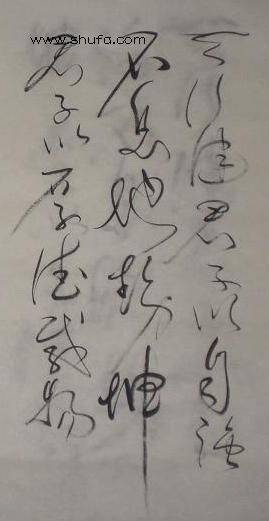 www.shufa.com
天行健君子以自强
不息地势坤
君子以厚德载物